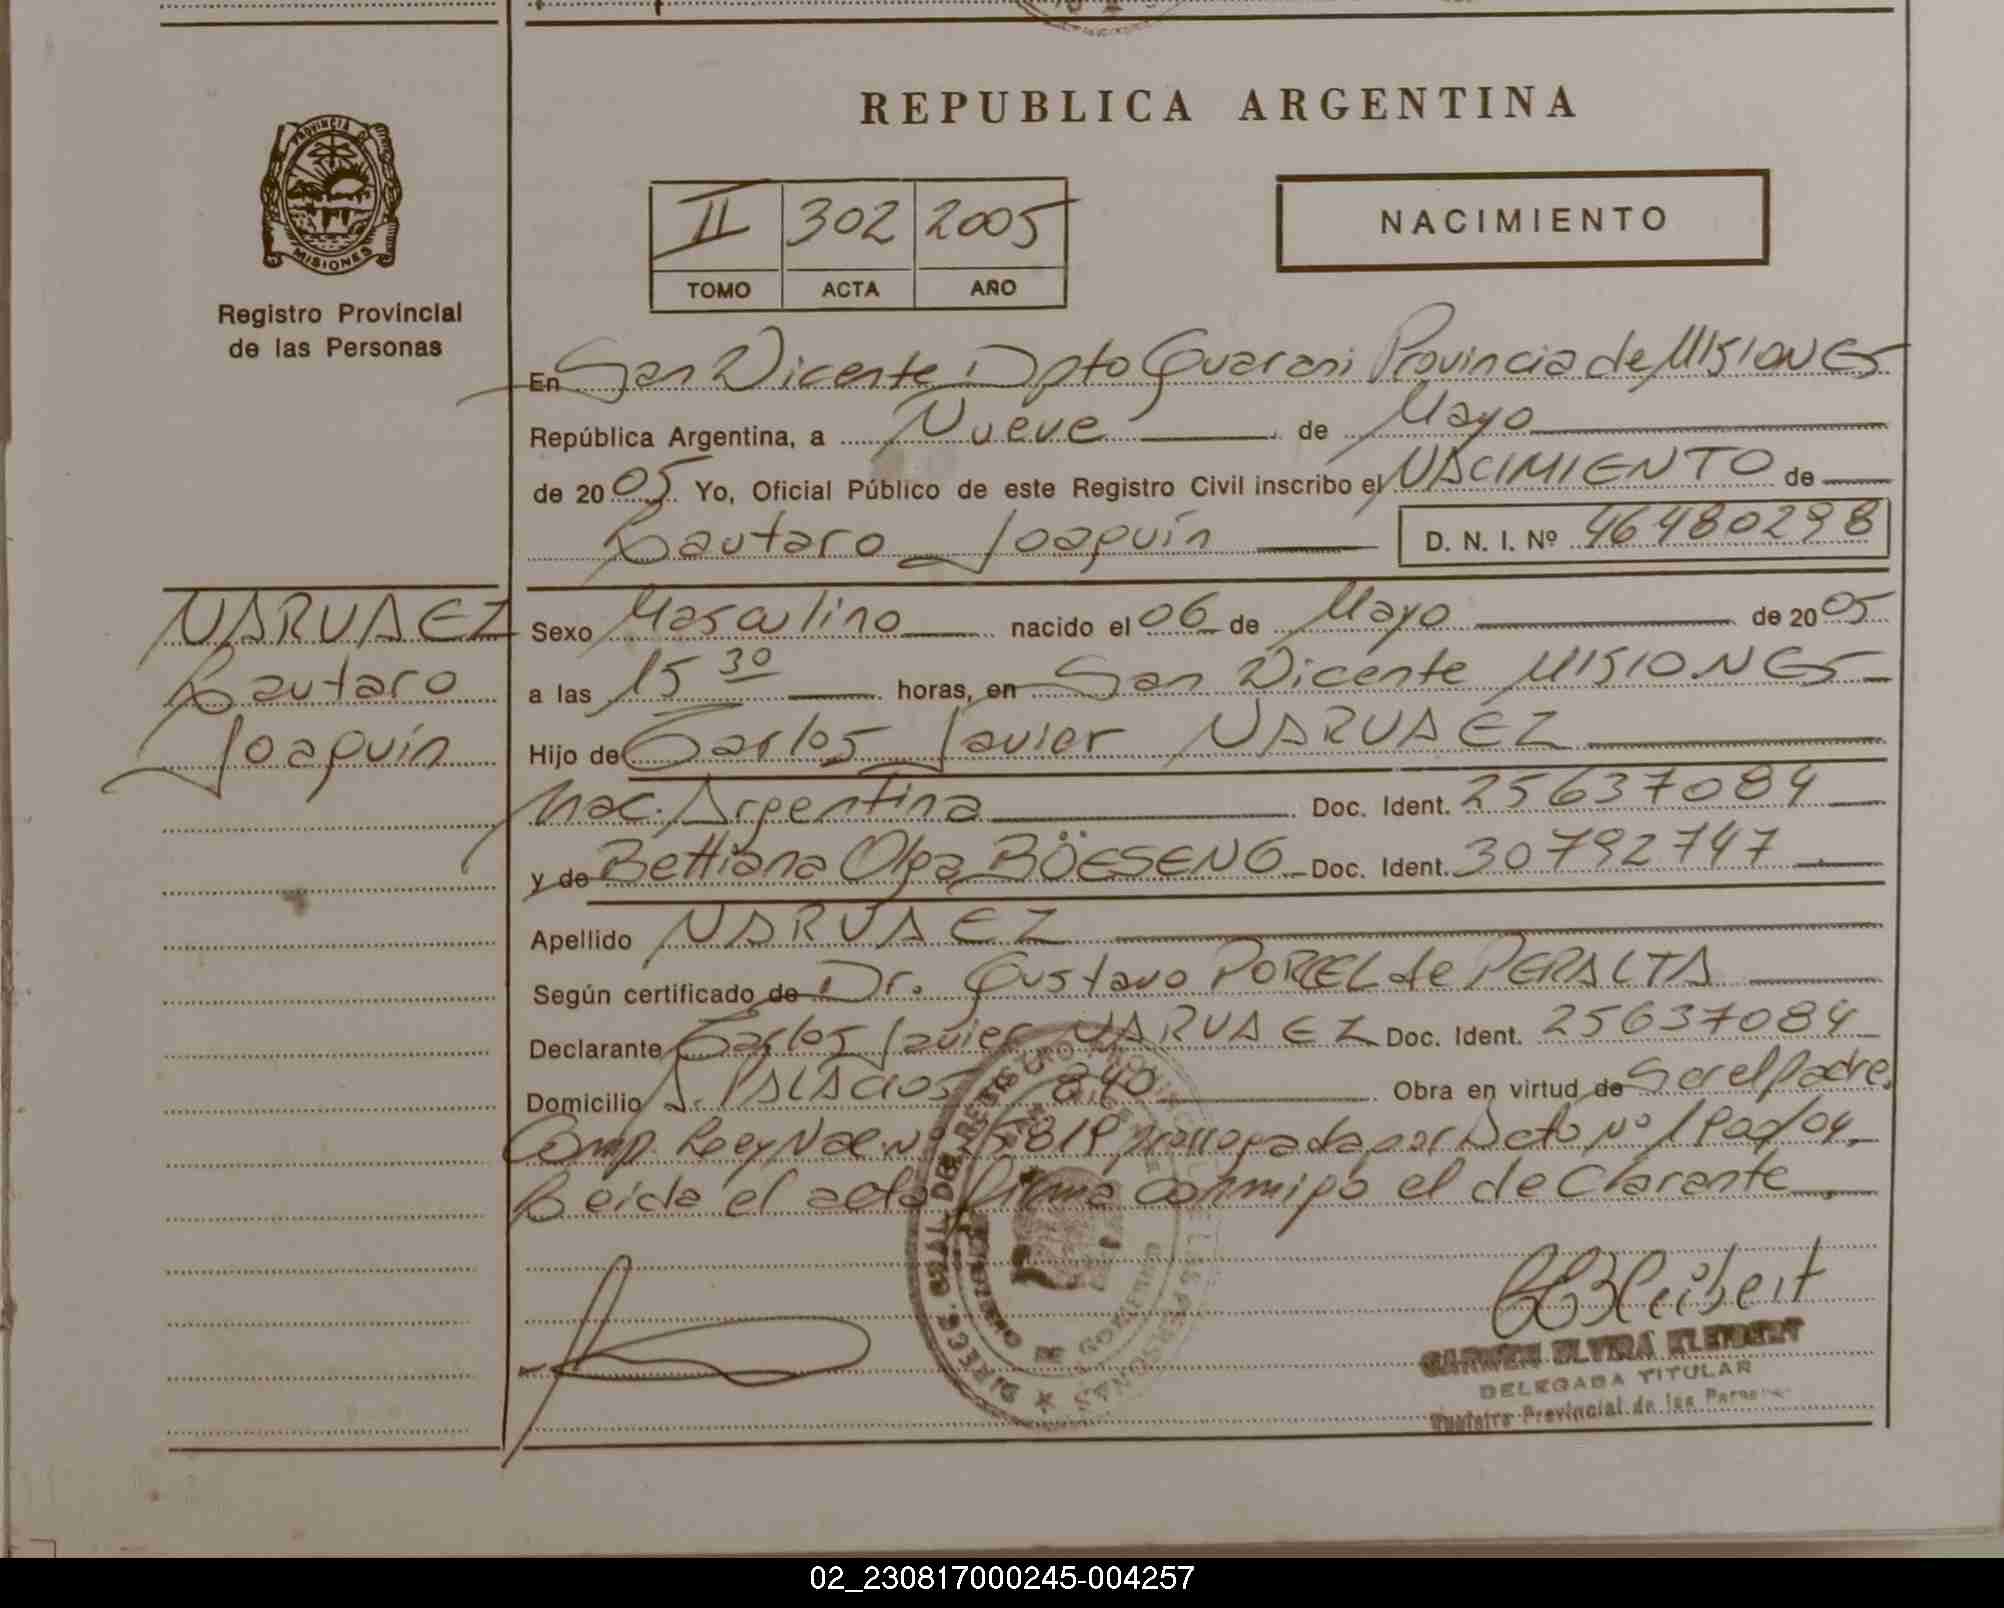 REPUBLICA ARGENTINA
PROVINCIA DE
MISIONES
Registro Provincial
de las Personas
II 302 2005
TOMO ACTA AÑO
NACIMIENTO
En San Vicente Dpto Guarani Provincia de MISIONES
República Argentina, a Nueve de Mayo
de 2005 Yo, Oficial Público de este Registro Civil inscribo el NACIMIENTO de
Lautaro Joaquín D. N. I. Nº 46480298
NARVAEZ
Lautaro
Joaquín
Sexo Masculino nacido el 06 de Mayo de 2005
a las 15 30 horas, en San Vicente MISIONES
Hijo de Carlos Javier NARVAEZ
Nac. Argentina Doc. Ident. 25637084
y de Bettiana Olga BÖESENG Doc. Ident. 30792747
Apellido NARVAEZ
Según certificado de Dr. Gustavo PORCEL de PERALTA
Declarante Carlos Javier NARVAEZ Doc. Ident. 25637084
Domicilio A. PALACIOS 840 Obra en virtud de Ser el padre.
Comp. Ley Nac. Nº 25819 prorrogada por Dcto Nº
Leida el acta firma conmigo el declarante
CARMEN ELVIRA KLEIBERT
DELEGADA TITULAR
Registro Provincial de las Personas
02_230817000245-004257